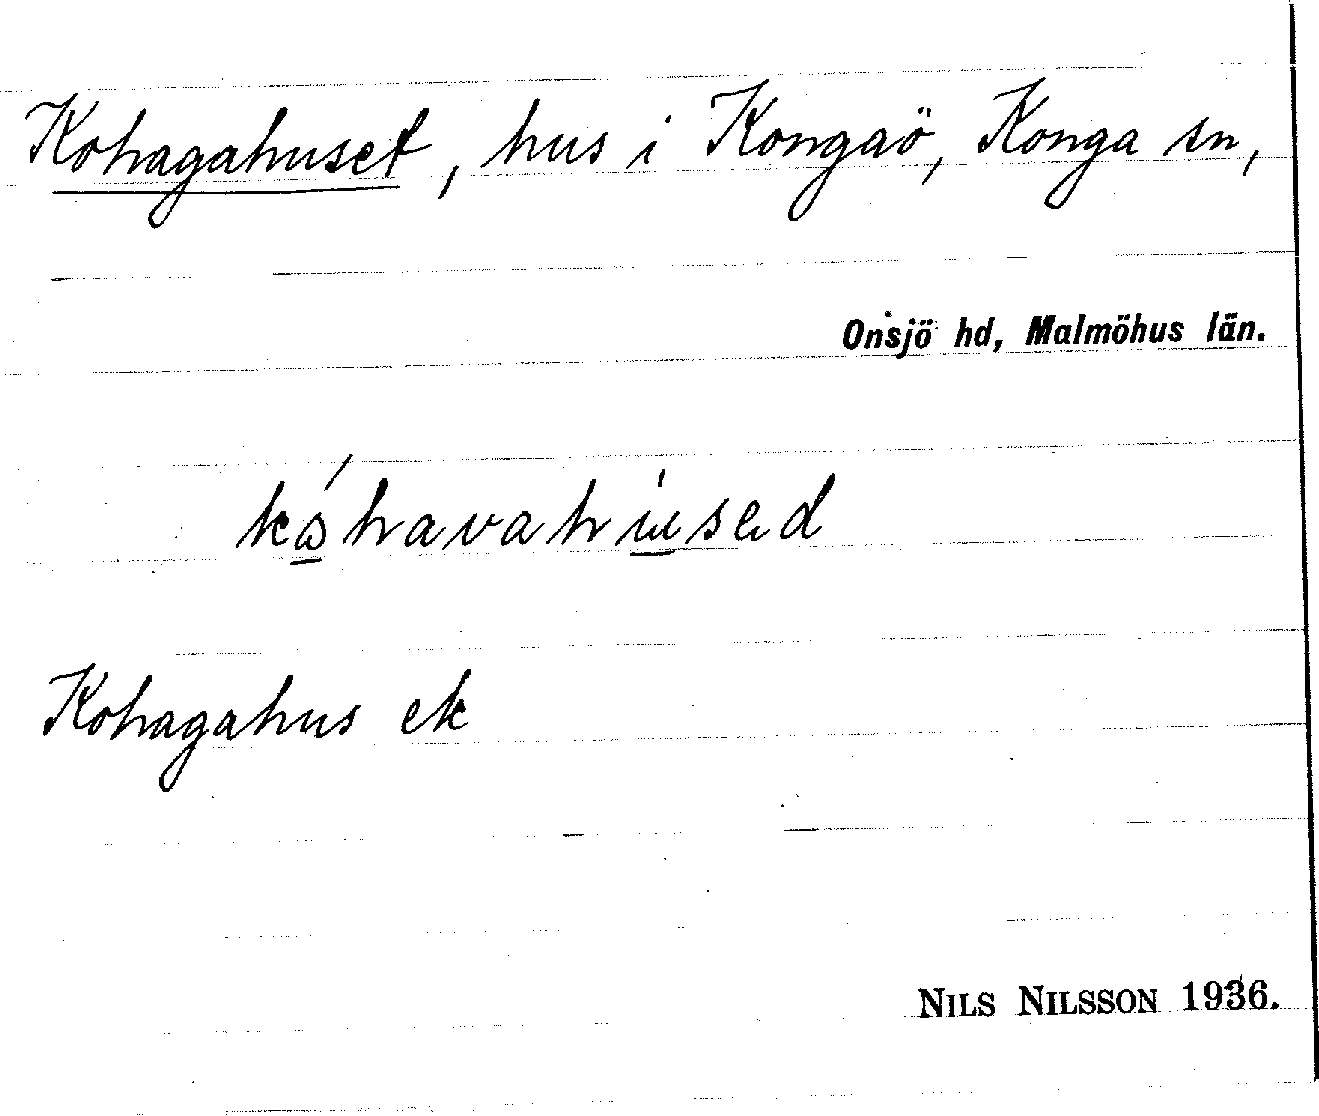 Kohagahuset, hus i Kongaö, Konga sn,
Onsjö hd, Malmöhus län.
Kohagahus ek
NILS NILSSON 1936.